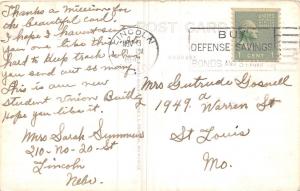 Thanks a Million for
the beautiful card.
I hope I havent sent
you one like this
hard to keep track
you send out so many.
This is our new
Student Union Build'g
Hope you like it.
Mrs Sarah
210-No-20-St
Lincoln
Nebr.
POST CARD
LINCOLN
BUY
DEFENSE SAVINGS
BONDS AND STAMPS
CENT
Mrs Gertrude Goswell
1949 a Warren St
St Louis
Mo.